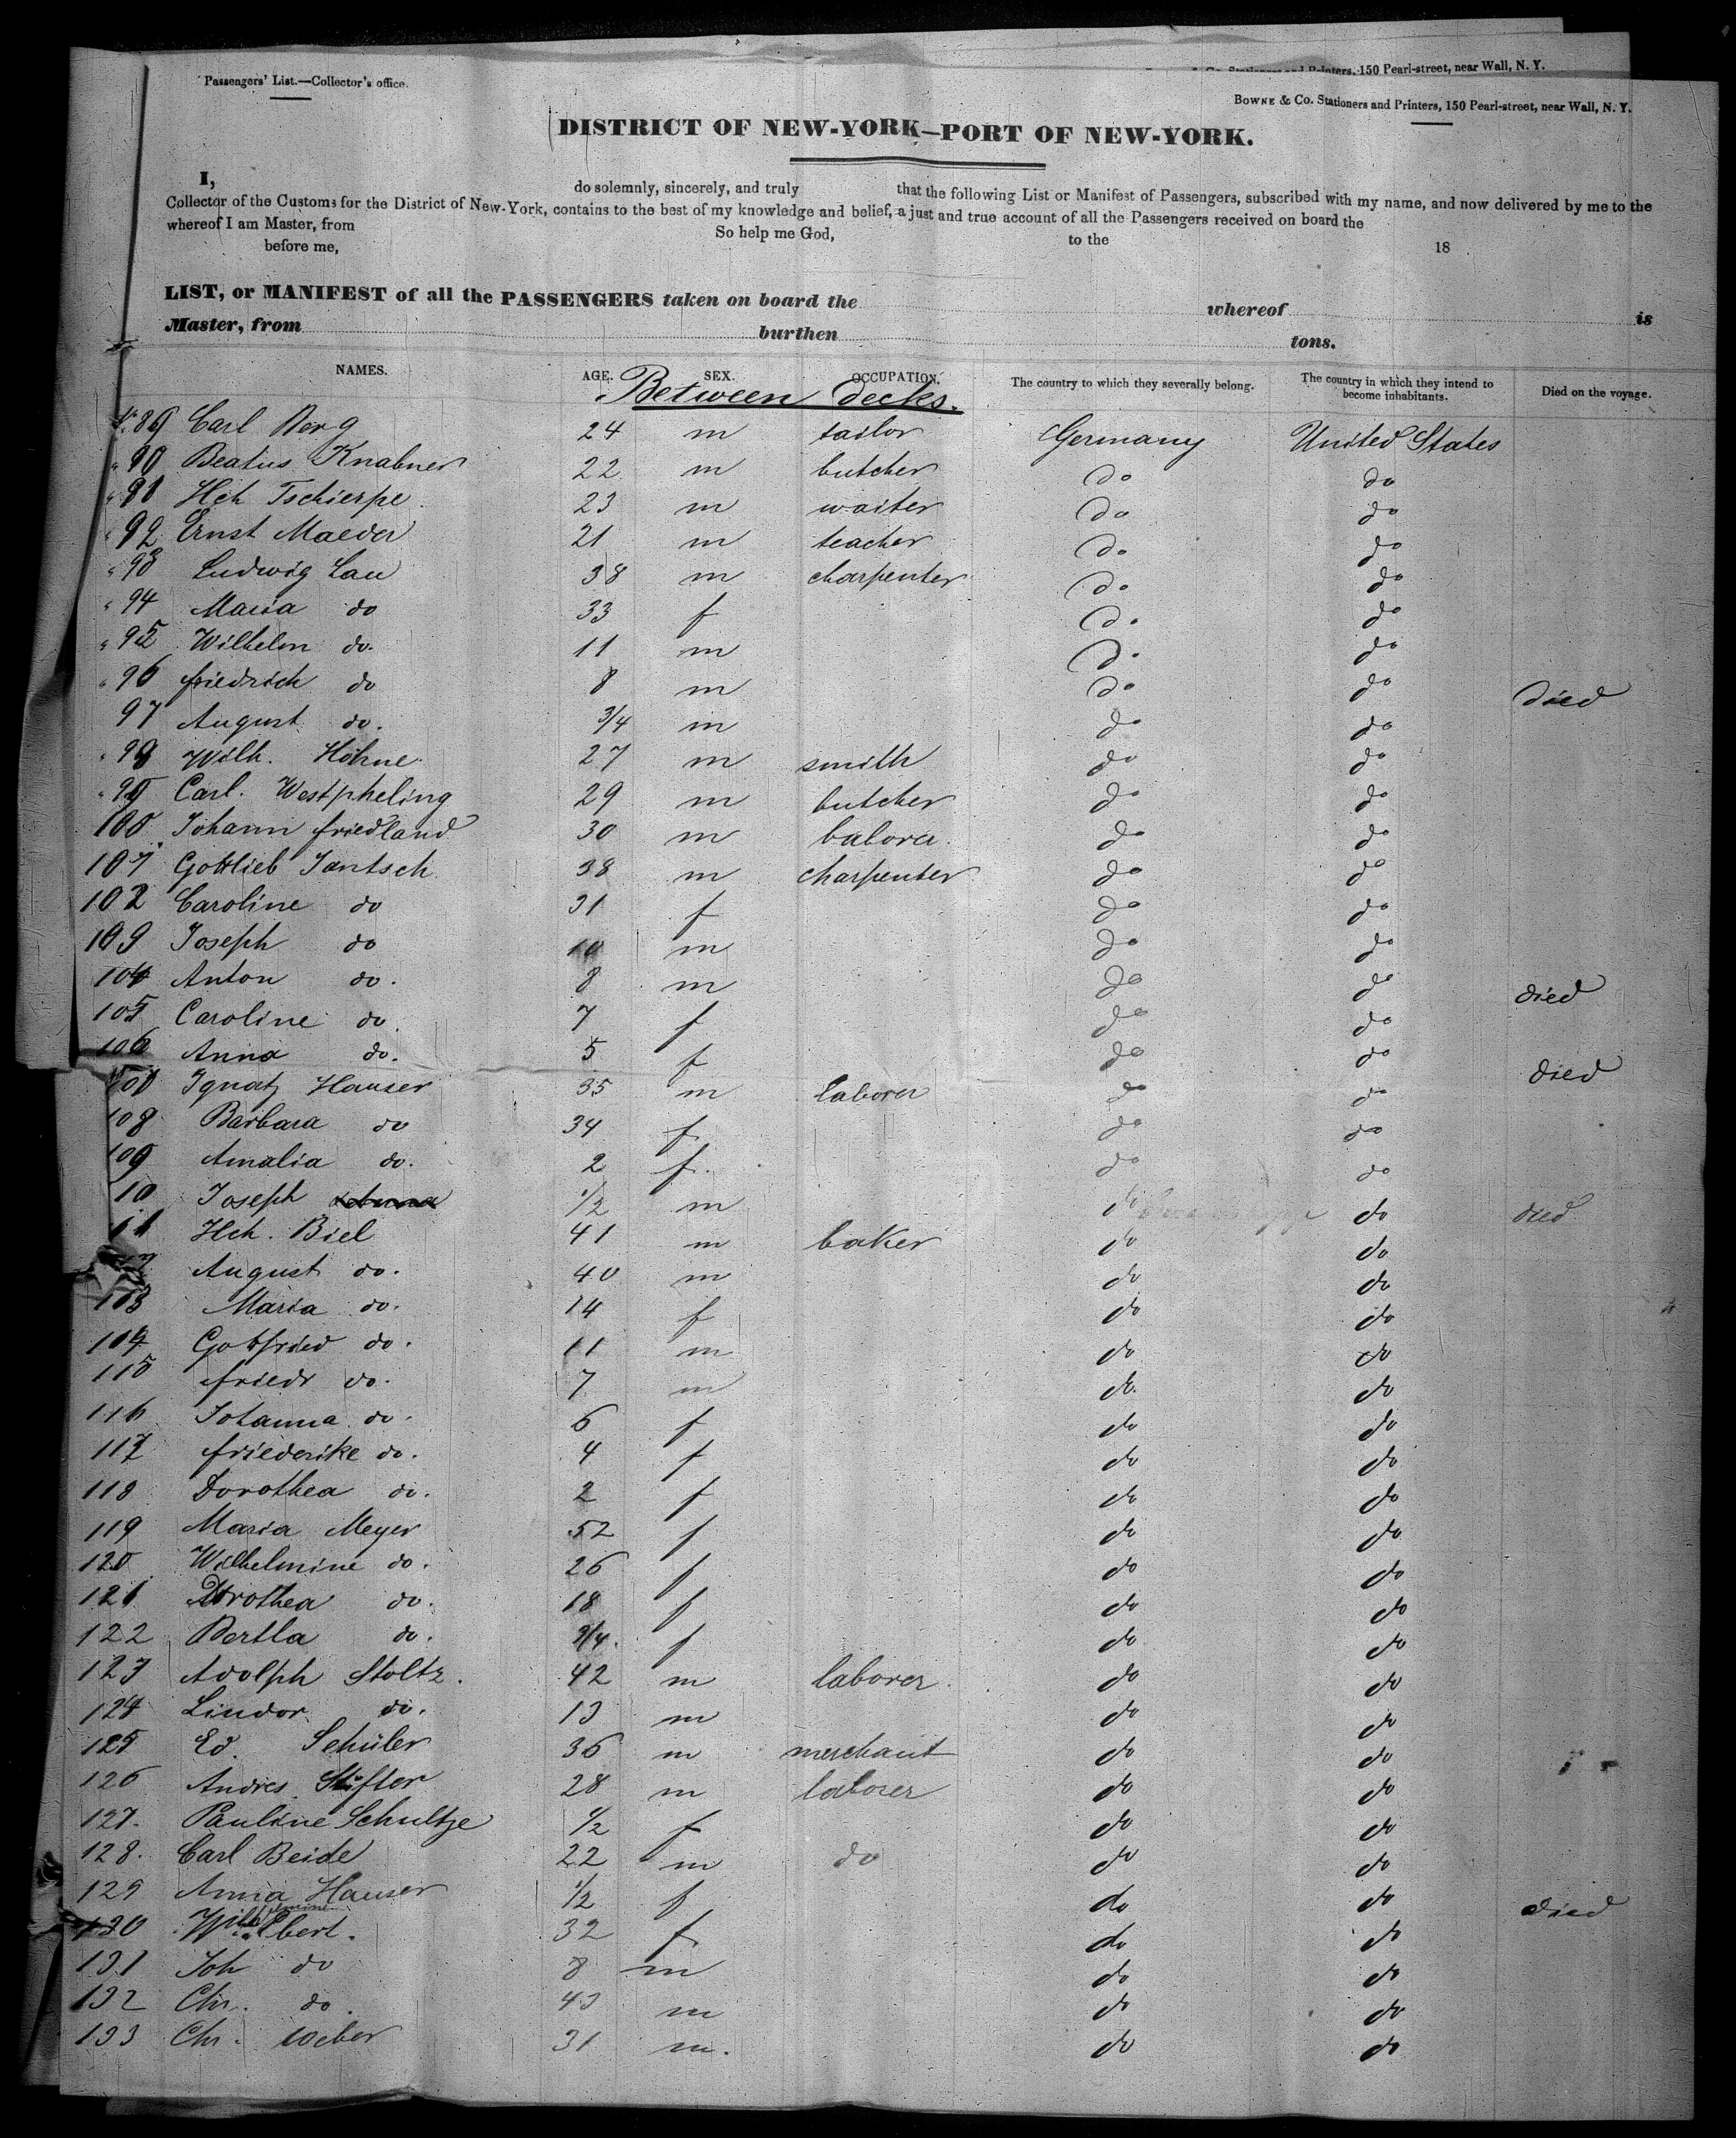 Passengers' List.—Collector's office.
Printers, 150 Pearl-street, near Wall, N. Y.
BOWNE & Co. Stationers and Printers, 150 Pearl-street, near Wall, N. Y.
DISTRICT OF NEW-YORK—PORT OF NEW-YORK.
I, do solemnly, sincerely, and truly that the following List or Manifest of Passengers, subscribed with my name, and now delivered by me to the
Collector of the Customs for the District of New-York, contains to the best of my knowledge and belief, a just and true account of all the Passengers received on board the
whereof I am Master, from So help me God, to the 18
before me,
LIST, or MANIFEST of all the PASSENGERS taken on board the whereof is
Master, from burthen tons.
NAMES. AGE. SEX. OCCUPATION. The country to which they severally belong. The country in which they intend to become inhabitants. Died on the voyage.
Between decks.
89 Carl Berg 24 m tailor Germany United States
90 Beatus Knabner 22 m butcher do do
91 Hch Tschierpe 23 m waiter do do
92 Ernst Maeder 21 m teacher do do
93 Ludwig Lau 38 m charpenter do do
94 Maria do 33 f do do
95 Wilhelm do. 11 m do do
96 friedrich do 8 m do do died
97 August do. 3/4 m do do
98 Wilh. Höhne 27 m smith do do
99 Carl. Westpheling 29 m butcher do do
100 Johann friedland 30 m balorer do do
101 Gottlieb Jantsch 38 m charpenter do do
102 Caroline do 31 f do do
103 Joseph do 10 m do do
104 Anton do. 8 m do do died
105 Caroline do. 7 f do do
106 Anna do. 5 f do do died
Ignatz Hauser 35 m laborer do do
108 Barbara do 34 f do do
109 Amalia do. 2 f. do do
10 Joseph 1/2 m do do died
11 Hch. Biel 41 m baker do do
August do. 40 m do do
103 Maria do. 14 f do do
104 Gottfried do. 11 m do do
115 friedr do. 7 m do. do
116 Johanna do. 6 f do do
117 friederike do. 4 f do do
118 Dorothea do. 2 f do do
119 Maria Meyer 52 f do do
120 Wilhelmine do. 26 f do do
121 Dorothea do. 18 f do do
122 Bertha do. 3/4. f do do
123 Adolph Stoltz. 42 m laborer do do
124 Lindor do. 13 m do do
125 Ed. Schüler 36 m merchant do do
126 Andres Stifter 28 m laborer do do
127. Pauline Schultze 1/2 f do do
128. Carl Beide 22 m do do do
129 Anna Hauser 1/2 f do do died
130 Wilhelmine Ebert. 32 f do do
131 Joh do 8 m do do
132 Chr. do. 43 m do do
133 Chr. Weber 31 m. do do